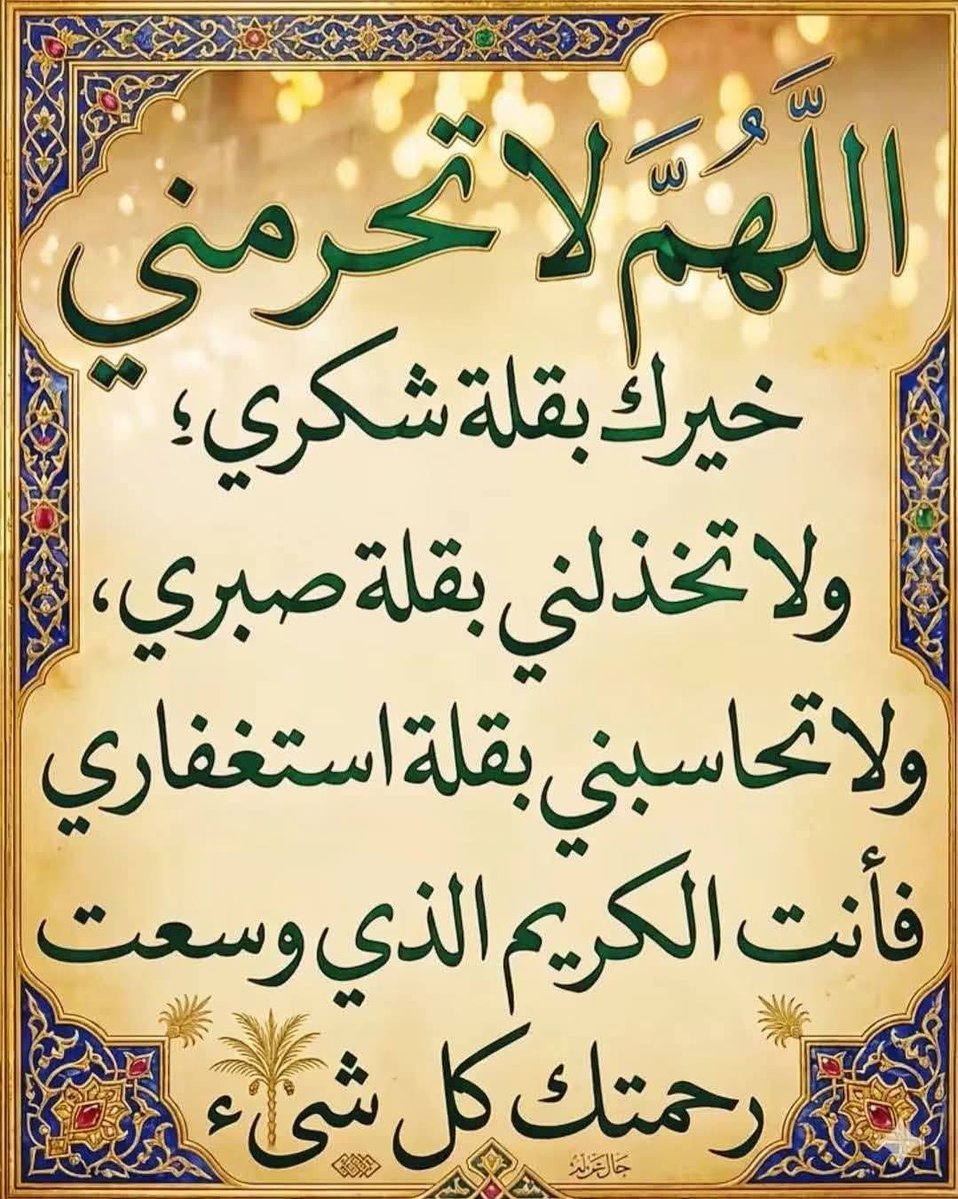 اللَّهُمَّ لا تحرمني
خيرك بقلة شكري؛
ولا تخذلني بقلة صبري،
ولا تحاسبني بقلة استغفاري
فأنت الكريم الذي وسعت
رحمتك كل شىء